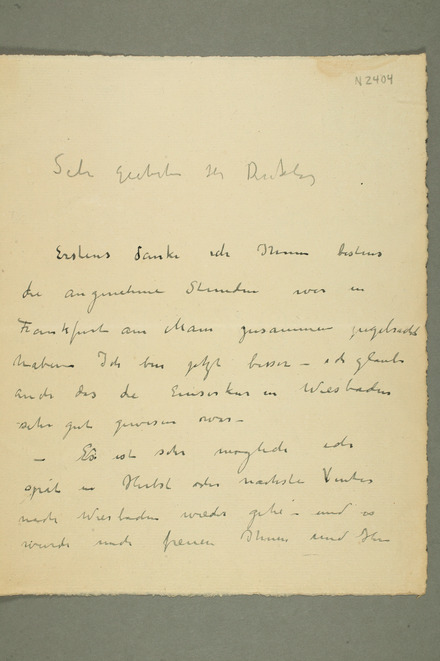 N 2404
Sehr geehrter Herr
Erstens danke ich Ihnen bestens
die angenehme Stunden was in
Frankfurt am Main zusammen zugebracht
haben Ich bin jetzt besser – ich glaube
auch das die Emserkur in Wiesbaden
sehr gut gewesen war –
– Es ist sehr moglich ich
spät in Herbst oder nachste Vinter
nach Wiesbaden wieder gehe – und es
wurde mich freuen Ihnen und Ihr